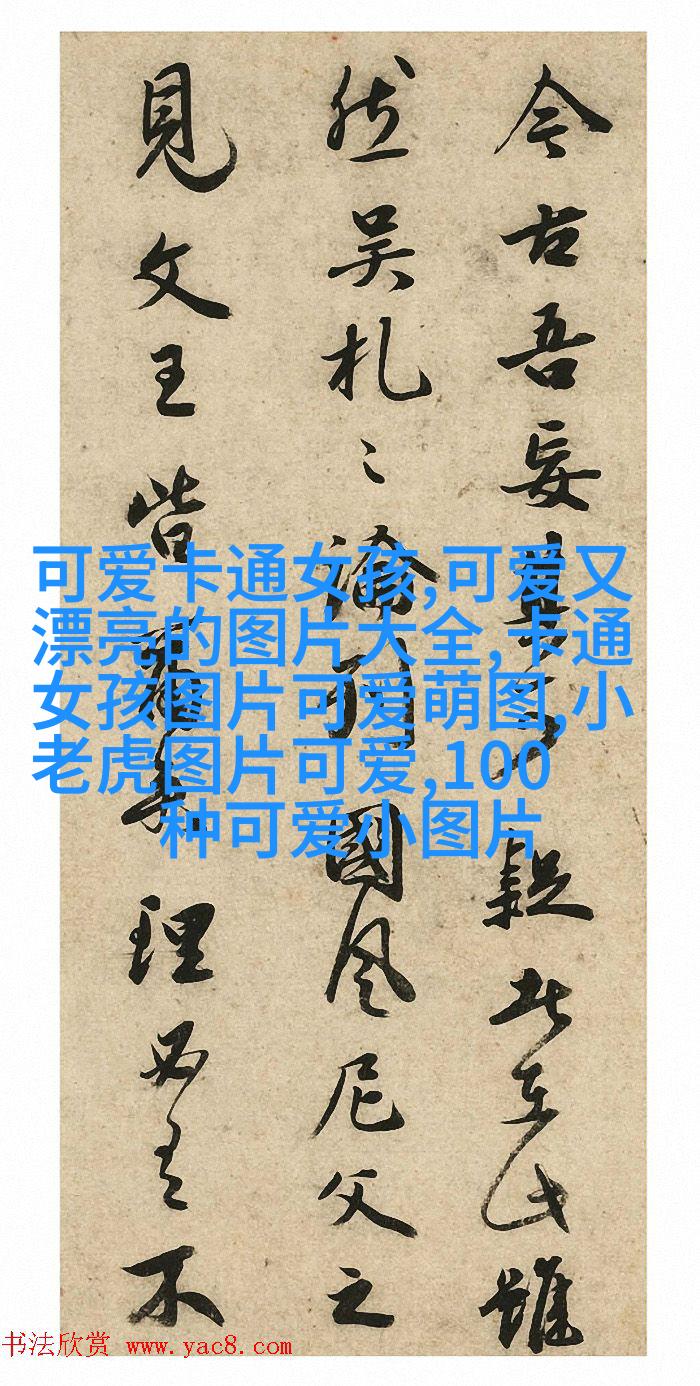 今古吾妄親在此雖
然吴札〻論列國风尼父之
見文王皆理必有不
可爱卡通女孩,可爱又
漂亮的图片大全,卡通
女孩图片可爱萌图,小
老虎图片可爱,100
种可爱小图片
书法欣赏 www.yac8.com